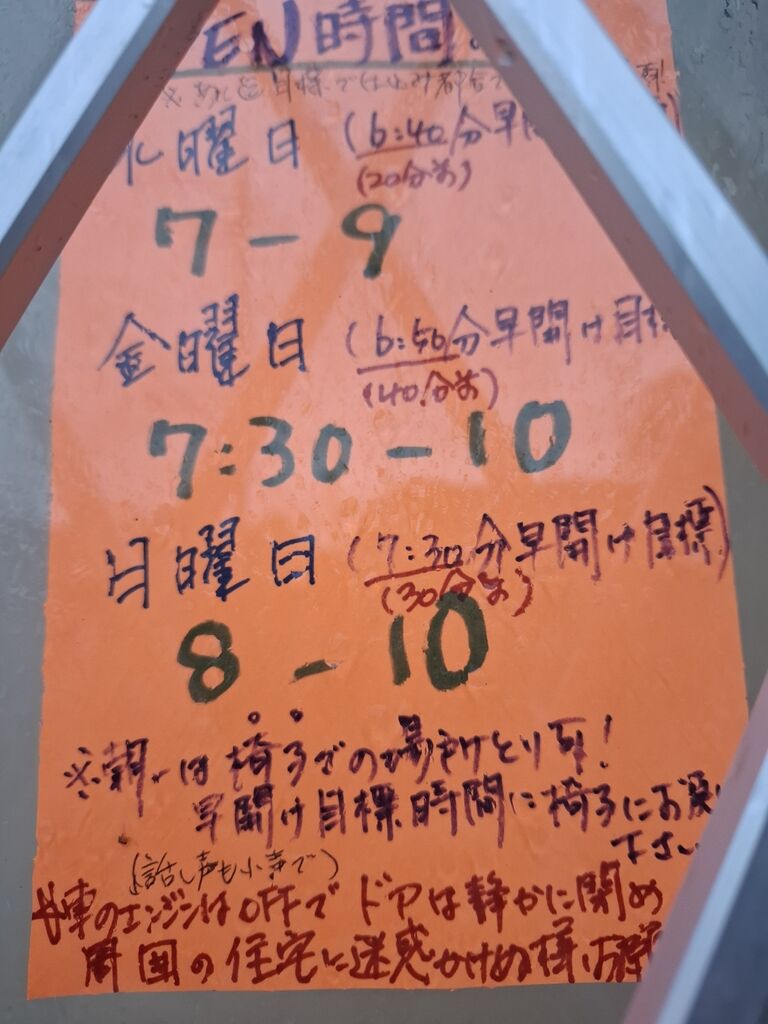 EN時間
目標で仕込み都合で
火曜日 (6:40分早開
(20分前)
7-9
金曜日 (6:50分早開け目標
(40分前)
7:30-10
日曜日 (7:30分早開け目標)
(30分前)
8-10
※朝一は椅子での場所とり可!
早開け目標時間に椅子にお戻り
下さい
(話し声も小声で)
車のエンジンはOFFで ドアは静かに閉め
周囲の住宅に迷惑かけぬ様お